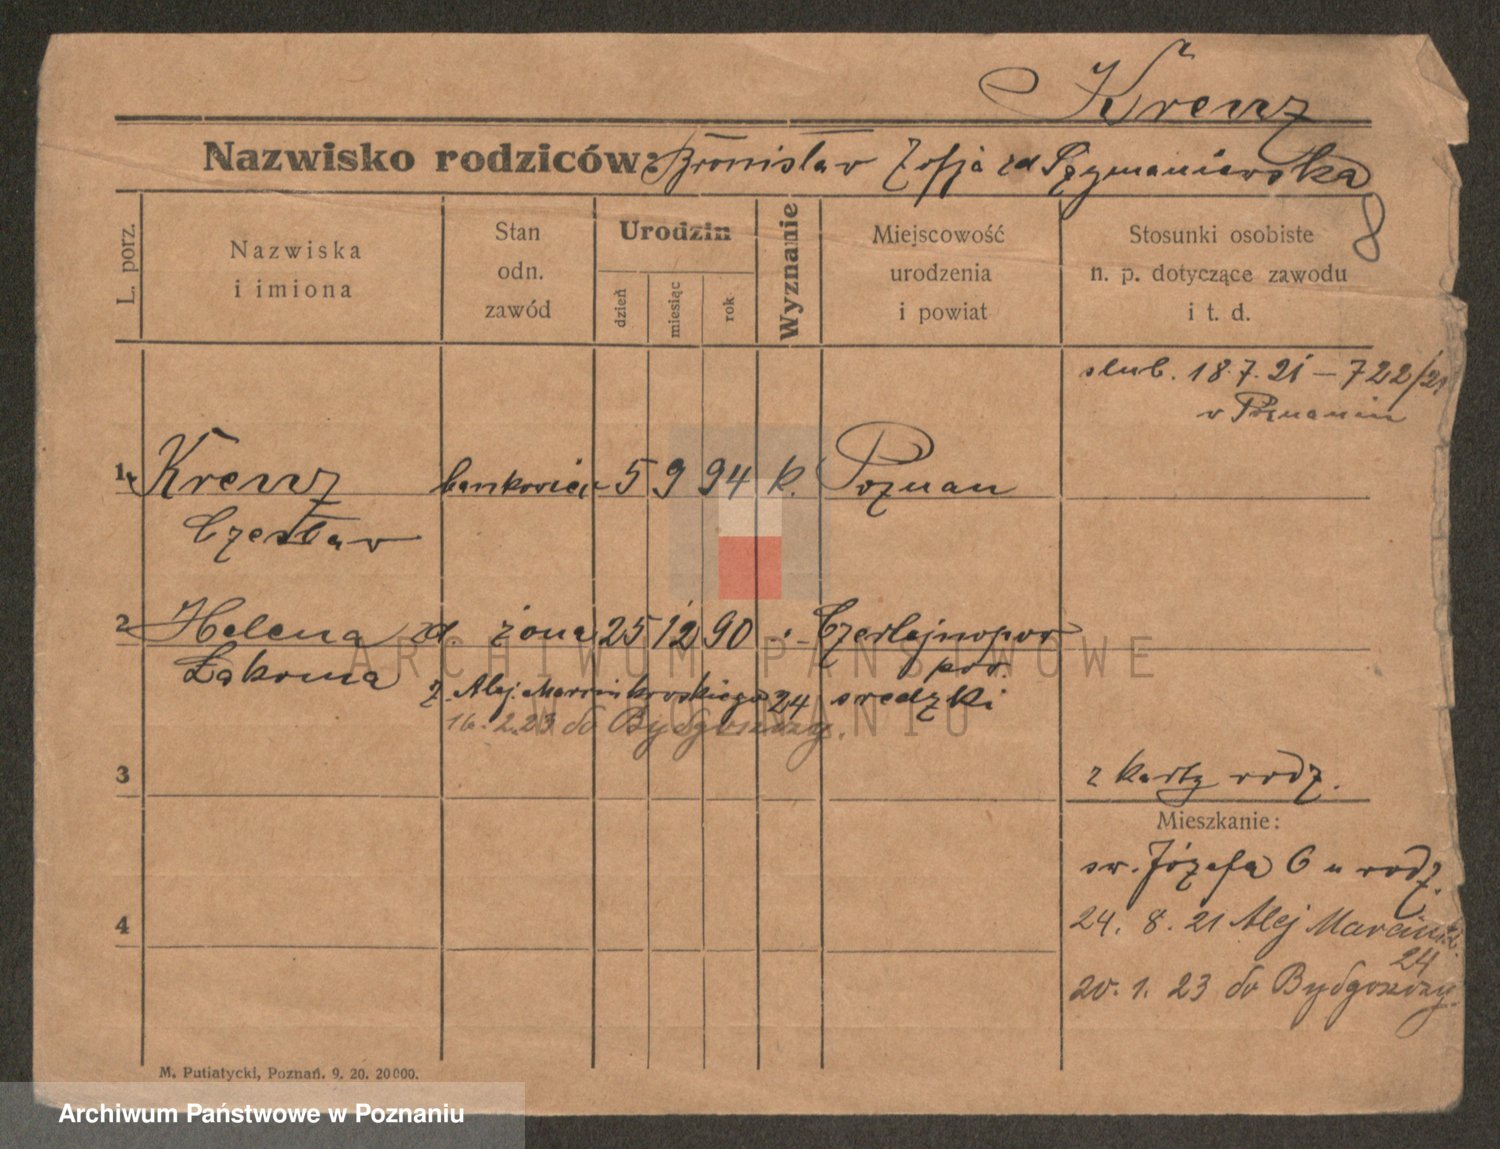 Krenz
Nazwisko rodziców: Bronisław Zofja zd
8
L. porz.
Nazwiska
i imiona
Stan
odn.
zawód
Urodzin
dzień
miesiąc
rok
Wyznanie
Miejscowość
urodzenia
i powiat
Stosunki osobiste
n. p. dotyczące zawodu
i t. d.
slub. 18.7.21 – 722/21
w Poznaniu
1 Krenz bankowiec 5 9 94 k. Poznan
Czesław
2 Helena zd. żona 25 12 90 Czerlejnopow
Łakoma pow.
z Alej. Marcinkowskiego 24 sredzki
16. 2. 23 do Bydgoszczy.
3
z karty rodz.
Mieszkanie:
sw. Józefa 6 u rodz.
4
24. 8. 21 Alej Marcink.
24
20. 1. 23 do Bydgoszczy.
M. Putiatycki, Poznań. 9. 20. 20000.
ARCHIWUM PAŃSTWOWE
W POZNANIU
Archiwum Państwowe w Poznaniu